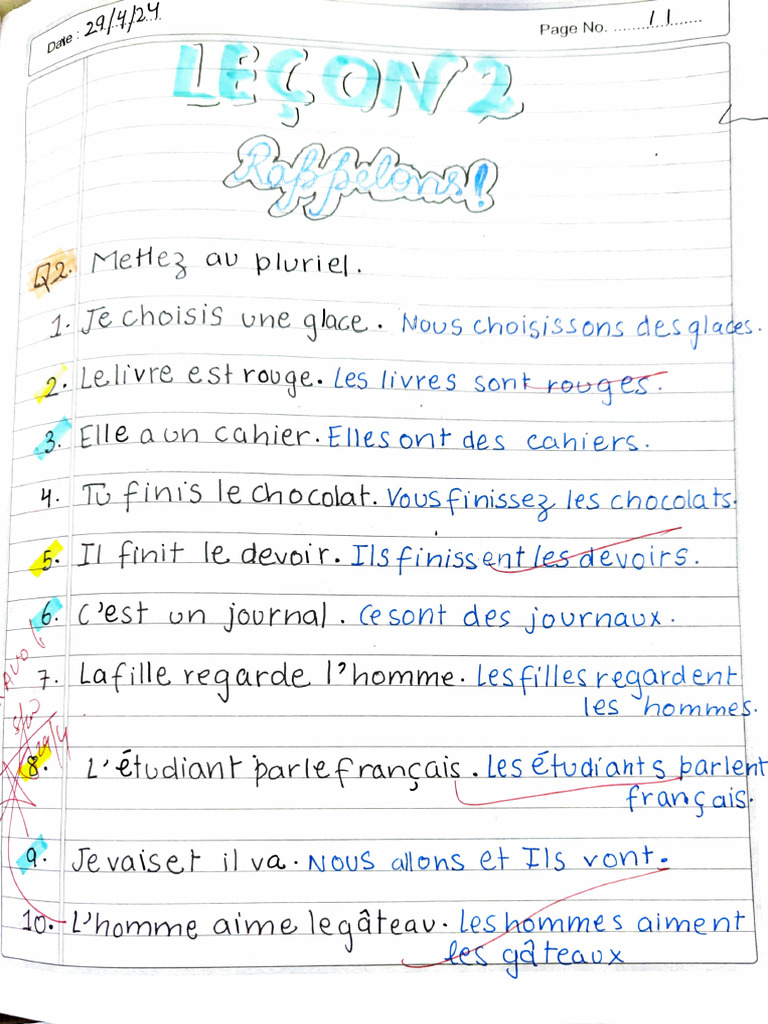 Date : 29/4/24
Page No. ........11.......
LEÇON 2
Rappelons!
Q2. Mettez au pluriel.
1. Je choisis une glace. Nous choisissons des glaces.
2. Le livre est rouge. Les livres sont rouges.
3. Elle a un cahier. Elles ont des cahiers.
4. Tu finis le chocolat. Vous finissez les chocolats.
5. Il finit le devoir. Ils finissent les devoirs.
6. C'est un journal. Ce sont des journaux.
7. La fille regarde l'homme. Les filles regardent
les hommes.
8. L'étudiant parle français. Les étudiants parlent
français.
9. Je vais et il va. Nous allons et Ils vont.
10. L'homme aime le gâteau. Les hommes aiment
les gâteaux